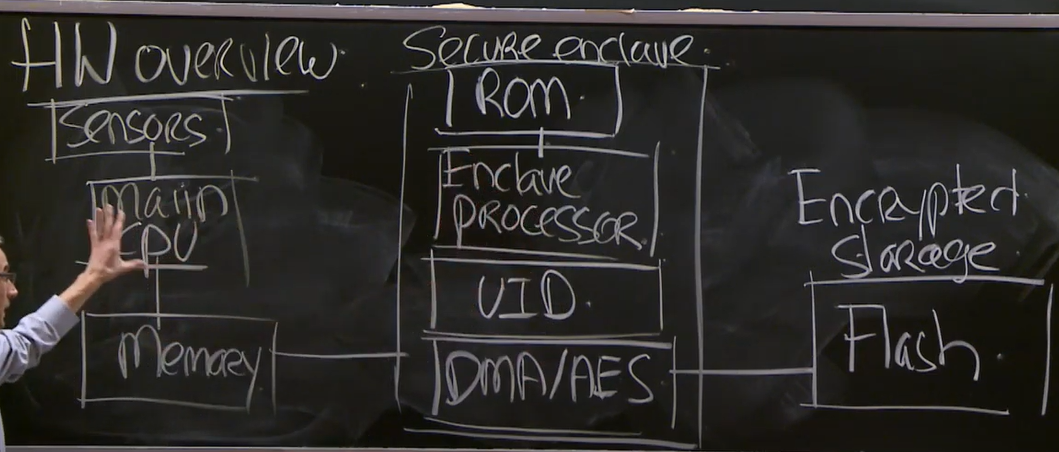 HW overview
Sensors
Main
CPU
Memory
Secure enclave
ROM
Enclave
processor
UID
DMA/AES
Encrypted
storage
Flash